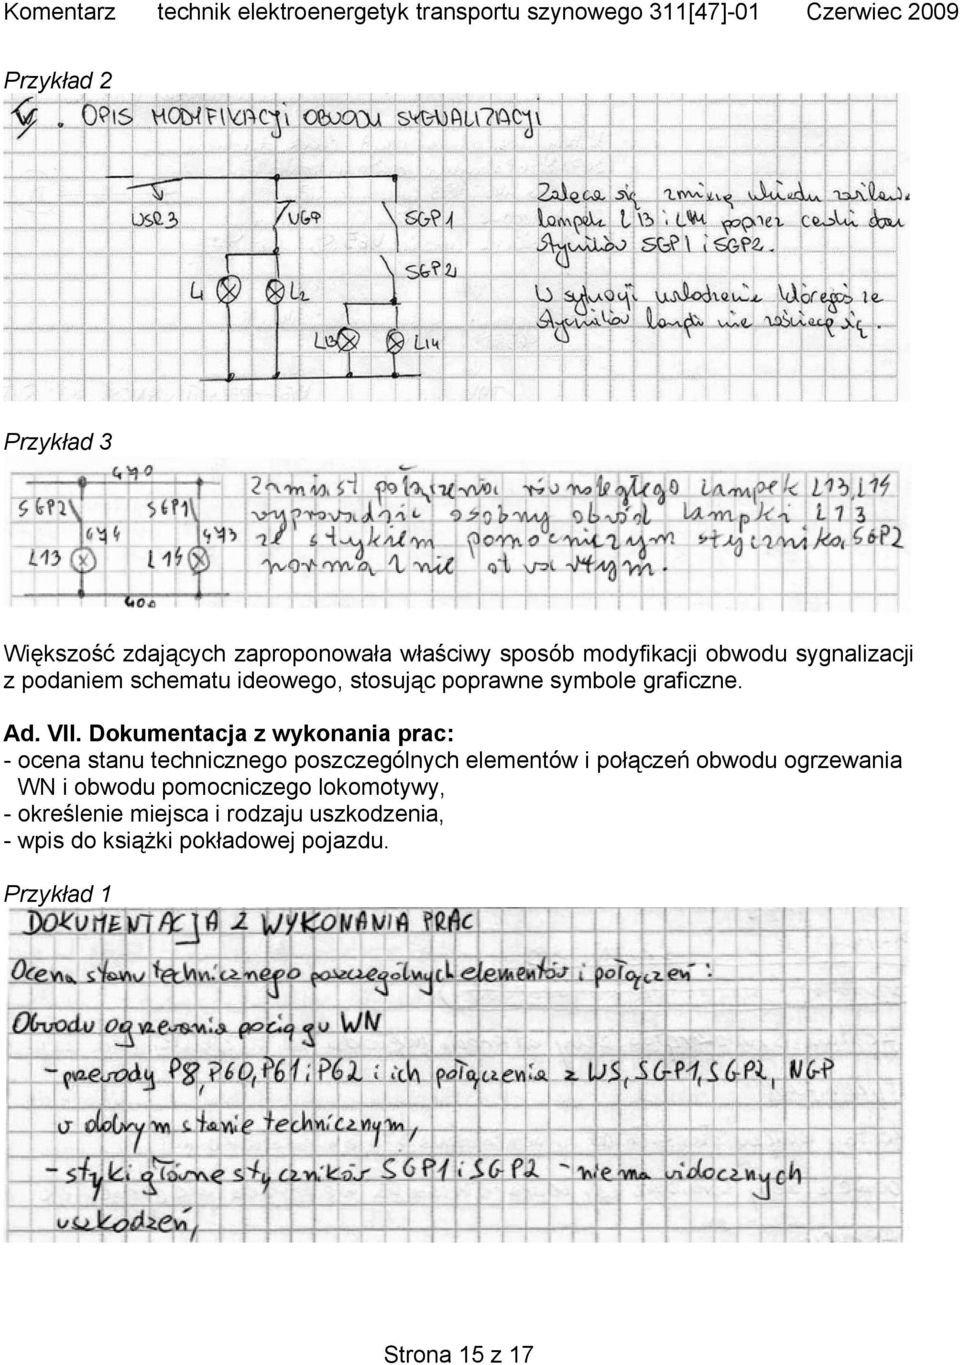 Komentarz technik elektroenergetyk transportu szynowego 311[47]-01 Czerwiec 2009
Przykład 2
V. OPIS MODYFIKACJI OBWODU SYGNALIZACJI
WSR3 UGP SGP1
SGP2
L1 L2
L13 L14
Zaleca się zmianę układu
lampek L13 i L14 poprzez cewki
styczników SGP1 i SGP2.
W sytuacji uszkodzenie któregoś ze
styczników lampki nie zaświecą się.
Przykład 3
470
SGP2 SGP1
474 473
L13 L14
400
Zamiast połączenia równoległego lampek L13, L14
wyprowadzić osobny obwód lampki L13
ze stykiem pomocniczym stycznika SGP2
normalnie otwartym.
Większość zdających zaproponowała właściwy sposób modyfikacji obwodu sygnalizacji
z podaniem schematu ideowego, stosując poprawne symbole graficzne.
Ad. VII. Dokumentacja z wykonania prac:
- ocena stanu technicznego poszczególnych elementów i połączeń obwodu ogrzewania
WN i obwodu pomocniczego lokomotywy,
- określenie miejsca i rodzaju uszkodzenia,
- wpis do książki pokładowej pojazdu.
Przykład 1
DOKUMENTACJA Z WYKONANIA PRAC
Ocena stanu technicznego poszczególnych elementów i połączeń:
Obwodu ogrzewania pociągu WN
- przewody P8, P60, P61 i P62 i ich połączenia z WS, SGP1, SGP2, NGP
w dobrym stanie technicznym,
- styki główne styczników SGP1 i SGP2 - nie ma widocznych
uszkodzeń,
Strona 15 z 17